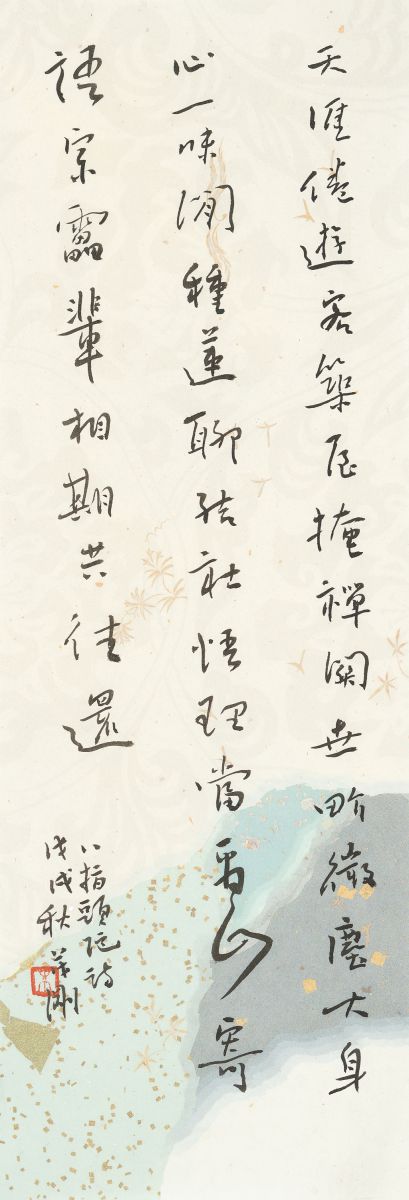 天涯倦遊客築居掩禪關世畍微塵大身
心一味閒種蓮聊結社悟理當看山寄
語宗靁輩相期共往還
八指頭陀詩
戊戌秋